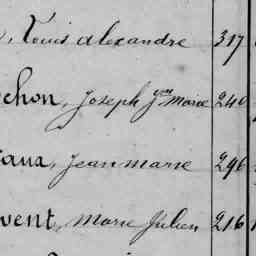 , Louis alexandre 317
chon, Joseph Jn Marie 240
aua, Jean marie 296
vent, Marie Julien 216